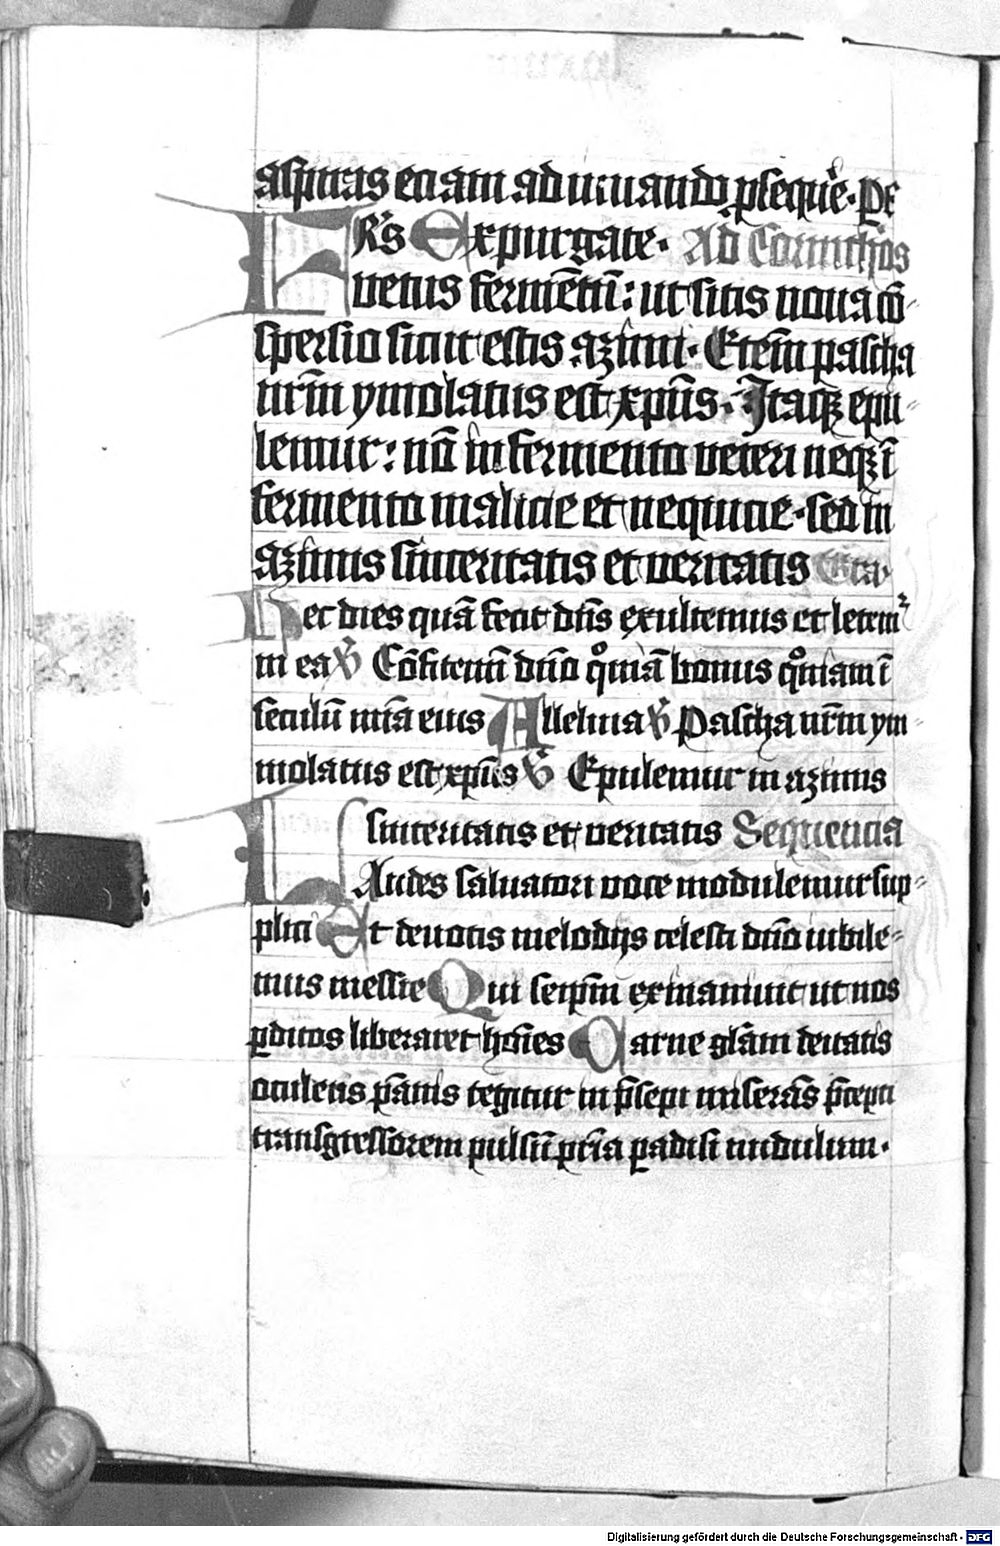 aspiras etiam adiuuando ꝓseque͛. Pe͛
FRs͛ Expurgate. Ad Corinthios
vetus fermētū: ut sitis noua cō-
spersio sicut estis azimi. Etem̄ pascha
nr̄m ymolatus est xp̄us. Itaqꝫ epu-
lemur: nō in fermento veteri neqꝫ ī
fermento malicie et nequicie. sed in
azimis sinceritatis et veritatis Gͣra.
Hec dies quā fecit dn̄s exultemus et letemᷣ
in ea ℣ Cōfitemī dn̄o qͦniā bonus qͦniam ī
seculū mīa eius Alleluia ℣ Pascha nr̄m ym-
molatus est xp̄us ℣ Epulemur in azimis
sinceritatis et veritatis Sequencia
LAudes saluatori voce modulemur sup-
plici Et deuotis melodijs celesti dn̄o iubile-
mus messie Qui seip̄m exinaniuit ut nos
ꝑditos liberaret hoīes Carne glām deitatis
oculens pānis tegitur in p̄sepi miserās p̄cepti
transgressorem pulsū pr̄ia ꝑadisi nudulum.
Digitalisierung gefördert durch die Deutsche Forschungsgemeinschaft - DFG